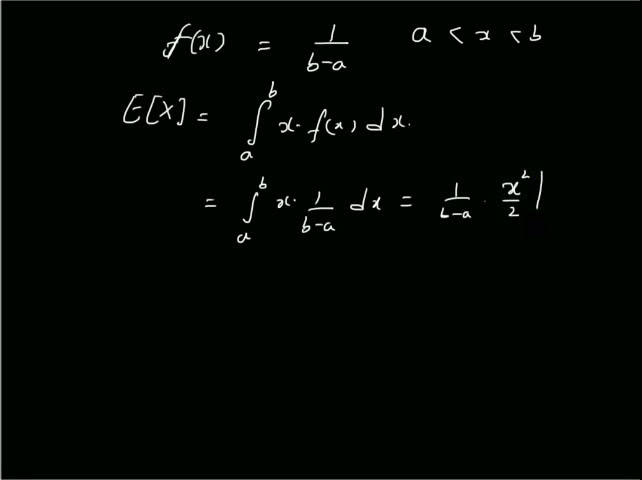 f(x) = 1/(b-a) a < x < b
E[X] = ∫_a^b x · f(x) dx.
= ∫_a^b x · 1/(b-a) dx = 1/(b-a) · x²/2 |